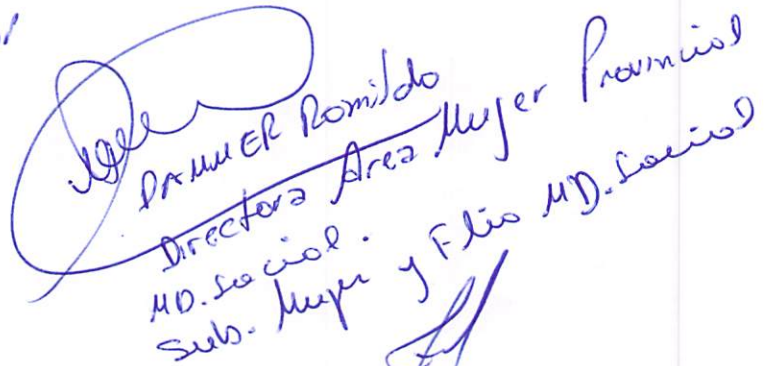 DAMMER Romildo
Directora Area Mujer Provincial
MD. Social.
Sub. Mujer y Flia MD. Social